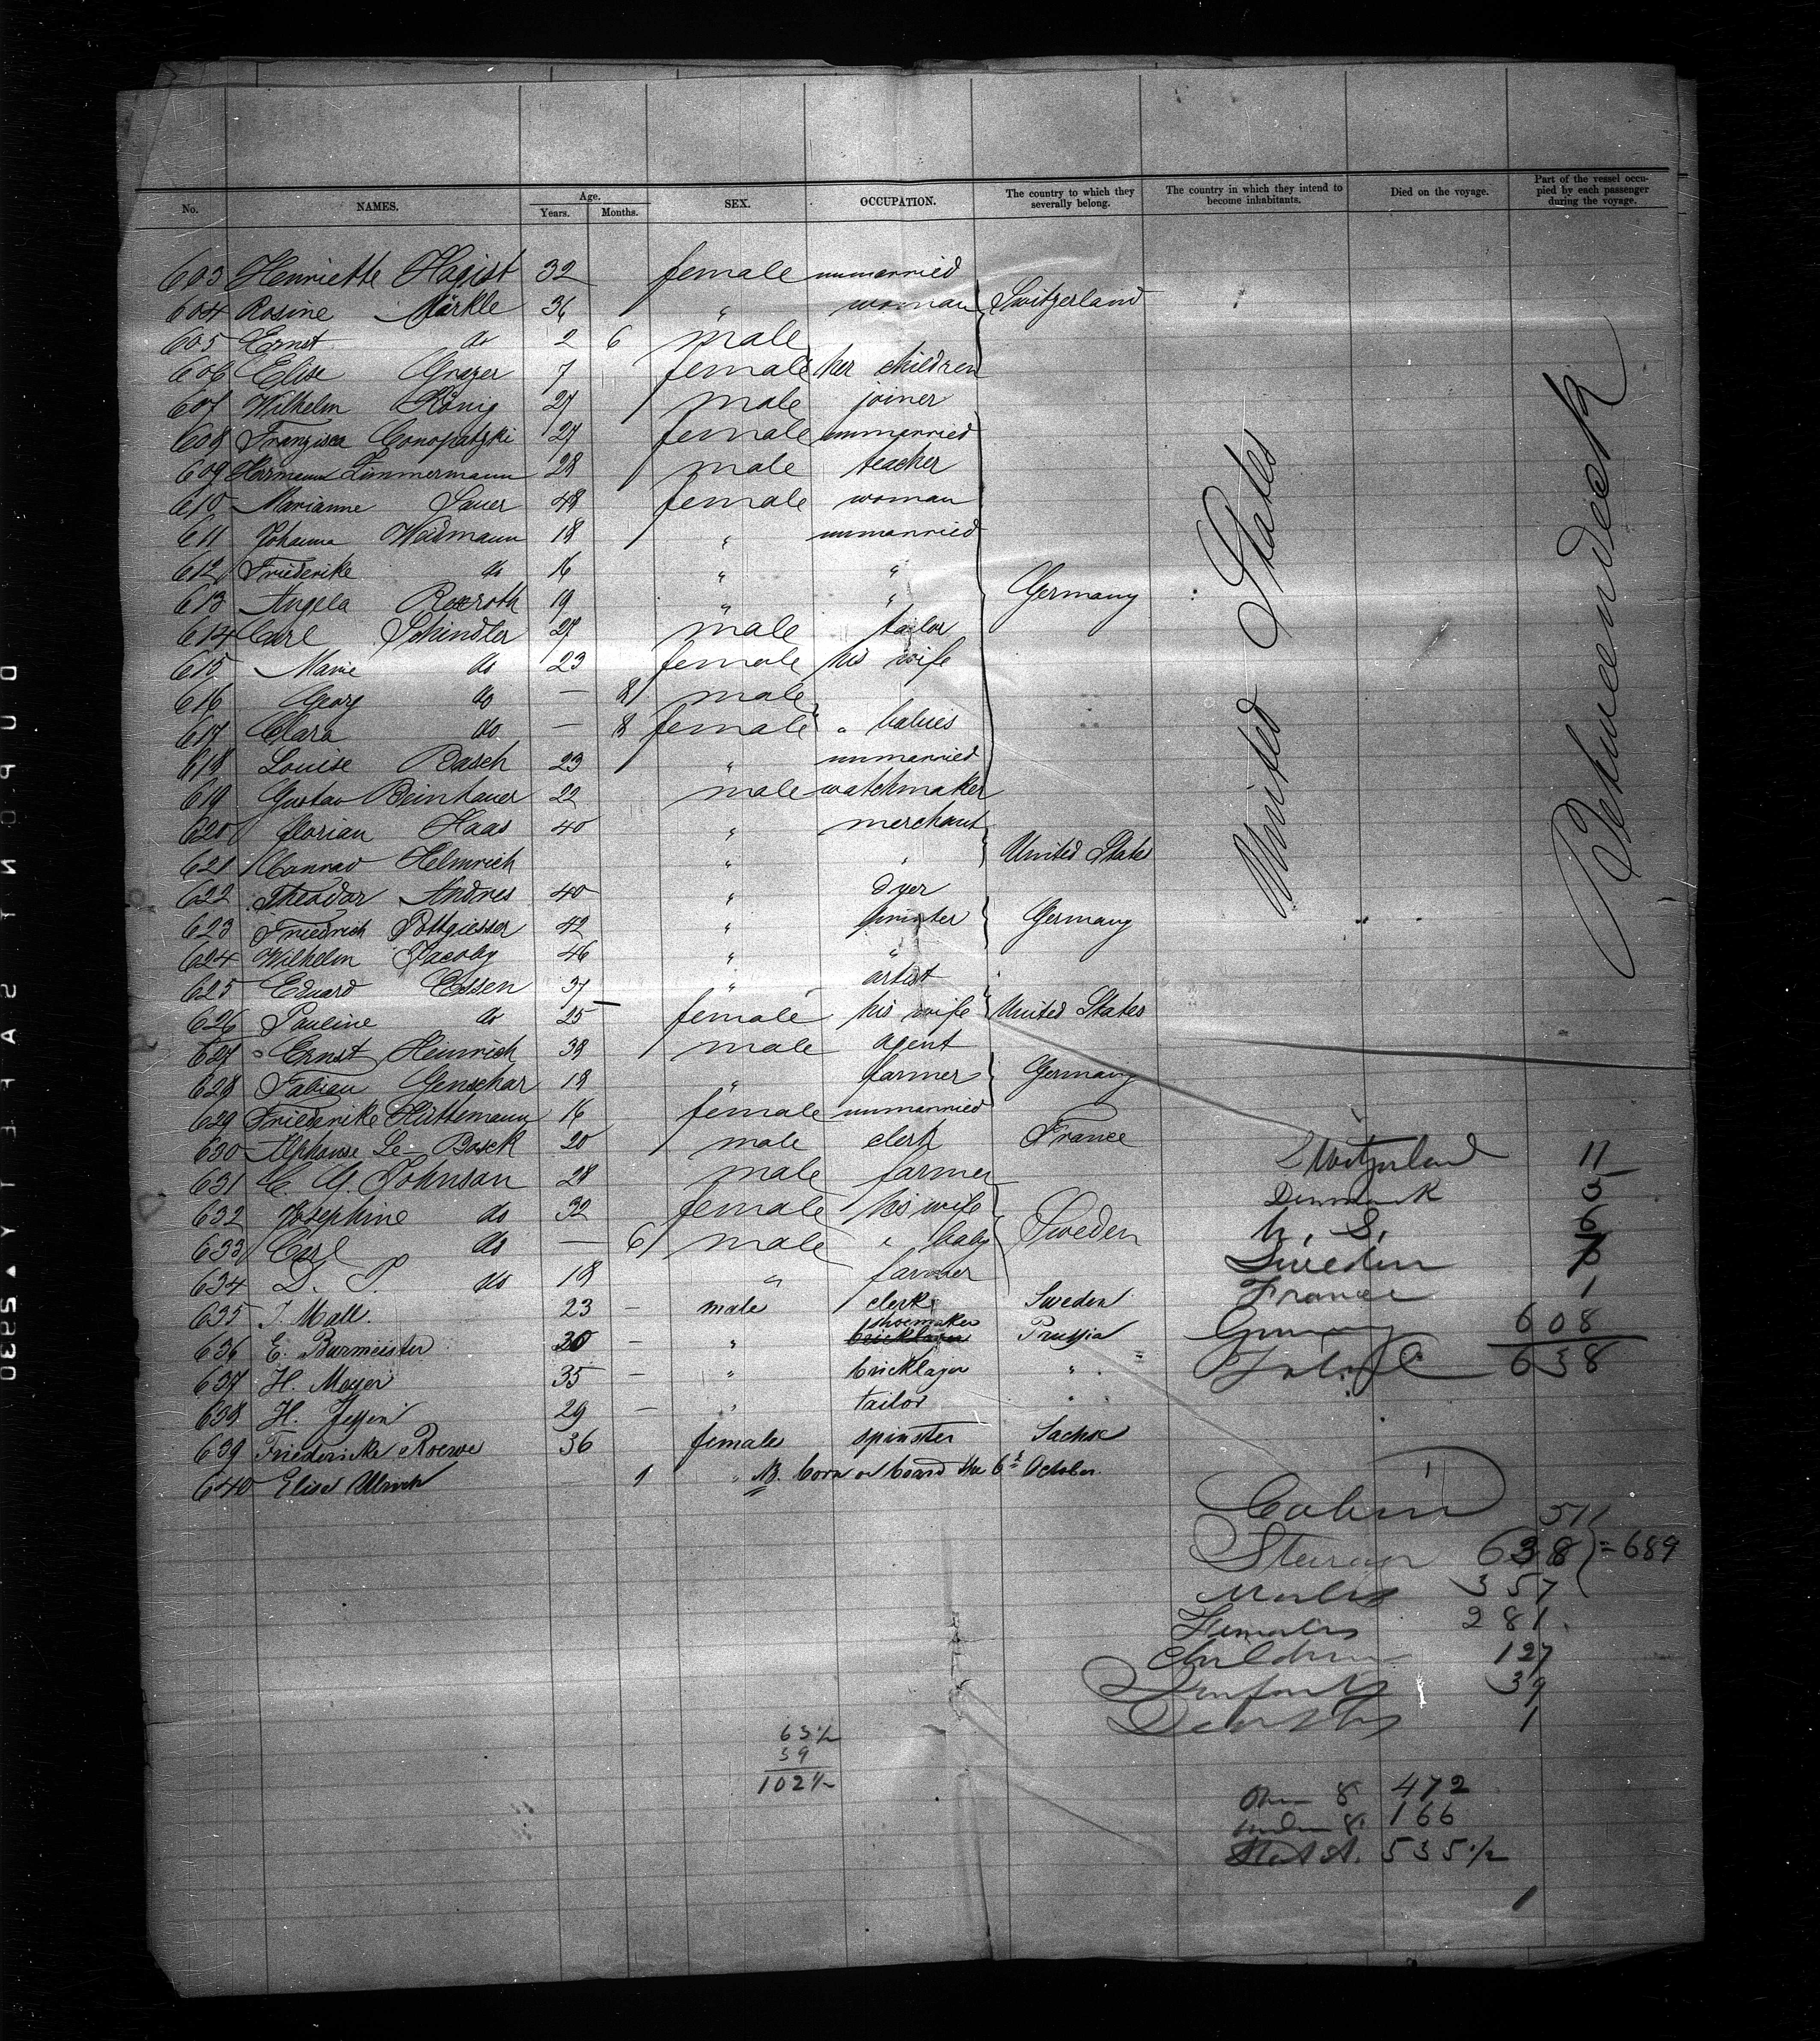 No. NAMES. Age. Years. Months. SEX. OCCUPATION. The country to which they severally belong. The country in which they intend to become inhabitants. Died on the voyage. Part of the vessel occupied by each passenger during the voyage.
603 Henriette Hagist 32 female unmarried
604 Rosine Märkle 36 " woman Switzerland
605 Ernst do 2 6 male
606 Elise Grazer 7 female her children
607 Wilhelm König 27 male joiner
608 Franzisca Conopatzki 27 female unmarried
609 Herrmann Zimmermann 28 male teacher
610 Marianne Sauer 48 female woman
611 Johanna Weidmann 18 " unmarried
612 Friederike do 16 " "
613 Angela Rexroth 19 " " Germany
614 Carl Schindler 27 male tailor
615 Marie do 23 female his wife
616 Georg do — 8 male
617 Clara do — 8 female " babies
618 Louise Rasch 23 " unmarried
619 Gustav Beinhauer 22 male watchmaker
620 Florian Haas 40 " merchant
621 Conrad Helmrich " " United States
622 Theodor Andres 40 " dyer
623 Friedrich Pottgiesser 42 " Germany
624 Wilhelm Jacoby 46 " "
625 Eduard Essen 37 " artist
626 Pauline do 25 female his wife United States
627 Ernst Heinrich 38 male agent
628 Fabian Genschar 18 " farmer Germany
629 Friederike Hüttemann 16 female unmarried
630 Alphonse Le Bosck 20 male clerk France
631 C. G. Johnson 28 male farmer
632 Josephine do 32 female his wife
633 Carl do — 6 male " baby Sweden
634 D. P. do 18 " farmer
635 J. Mall. 23 — male clerk Sweden
shoemaker
636 E. Burmeister 30 — " bricklayer Prussia
637 H. Meyer 35 — " bricklayer "
638 H. Jessen 29 — " tailor "
639 Friedericke Roewe 36 female spinster Sachse
640 Elise 1 " NB. born on board the 6t October.
United States
Betweendeck
Switzerland 11
Denmark 5
U. S. 6
Sweden
France 1
Germany 608
Total 638
Cabin 51
Steerage 638 = 689
Males 357
Females 281
Children 127
Infants 39
Deaths 1
63½
39
102½
Over 8 472
under 8 166
Stat A. 535½